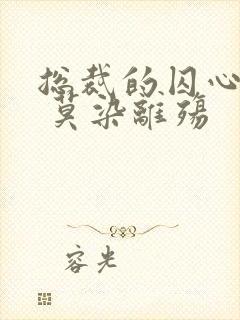 总裁的囚心
莫染離殤
容光